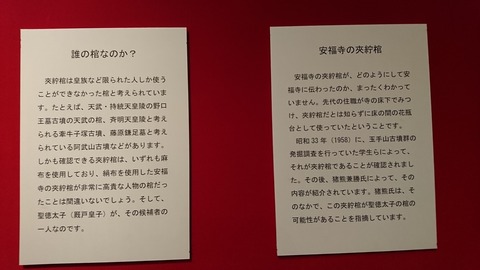 誰の棺なのか?
夾紵棺は皇族など限られた人しか使う
ことができなかった棺と考えられていま
す。たとえば、天武・持統天皇陵の野口
王墓古墳の天武の棺、斉明天皇陵と考え
られる牽牛子塚古墳、藤原鎌足墓と考え
られている阿武山古墳などがあります。
しかも確認できる夾紵棺は、いずれも麻
布を使用しており、絹布を使用した安福
寺の夾紵棺が非常に高貴な人物の棺だっ
たことは間違いないでしょう。そして、
聖徳太子(厩戸皇子)が、その候補者の
一人なのです。
安福寺の夾紵棺
安福寺の夾紵棺が、どのようにして安
福寺に伝わったのか、まったくわかって
いません。先代の住職が寺の床下でみつ
け、夾紵棺だとは知らずに床の間の花瓶
台として使っていたということです。
昭和33年(1958)に、玉手山古墳群の
発掘調査を行っていた学生らによって、
それが夾紵棺であることが確認されまし
た。その後、猪熊兼勝氏によって、その
内容が紹介されています。猪熊氏は、そ
のなかで、この夾紵棺が聖徳太子の棺の
可能性があることを指摘しています。